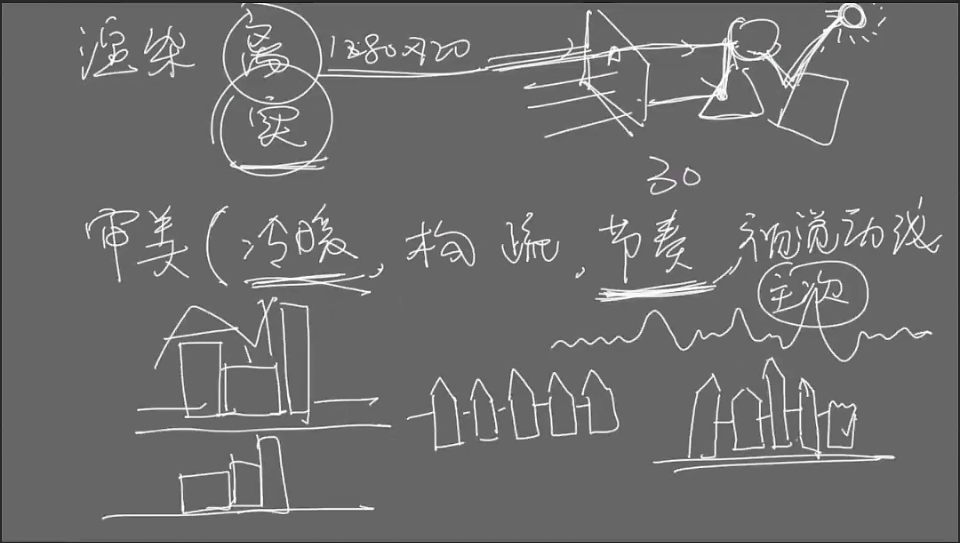 渲染 实 1280x720
30
审美(冷暖, 构 , 节奏, 视觉动线
主次